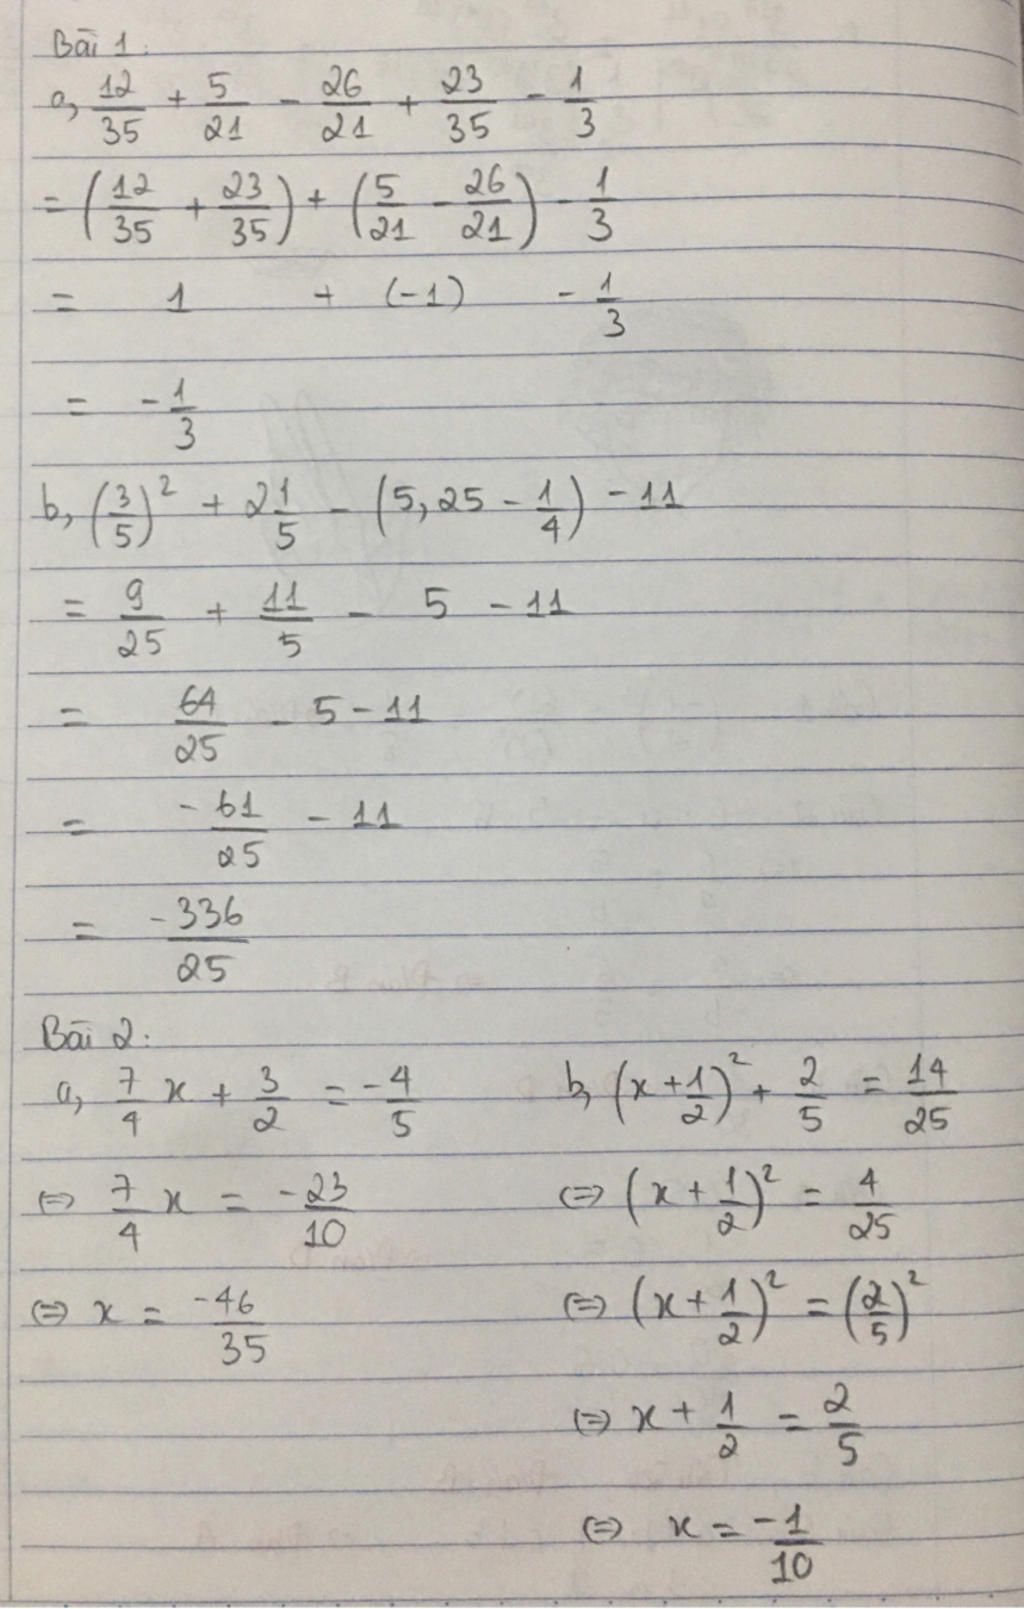 Bài 1:
a, 12/35 + 5/21 - 26/21 + 23/35 - 1/3
= (12/35 + 23/35) + (5/21 - 26/21) - 1/3
= 1 + (-1) - 1/3
= -1/3
b, (3/5)² + 2 1/5 - (5,25 - 1/4) - 11
= 9/25 + 11/5 - 5 - 11
= 64/25 - 5 - 11
= -61/25 - 11
= -336/25
Bài 2:
a, 7/4 x + 3/2 = -4/5
⇔ 7/4 x = -23/10
⇔ x = -46/35
b, (x + 1/2)² + 2/5 = 14/25
⇔ (x + 1/2)² = 4/25
⇔ (x + 1/2)² = (2/5)²
⇔ x + 1/2 = 2/5
⇔ x = -1/10